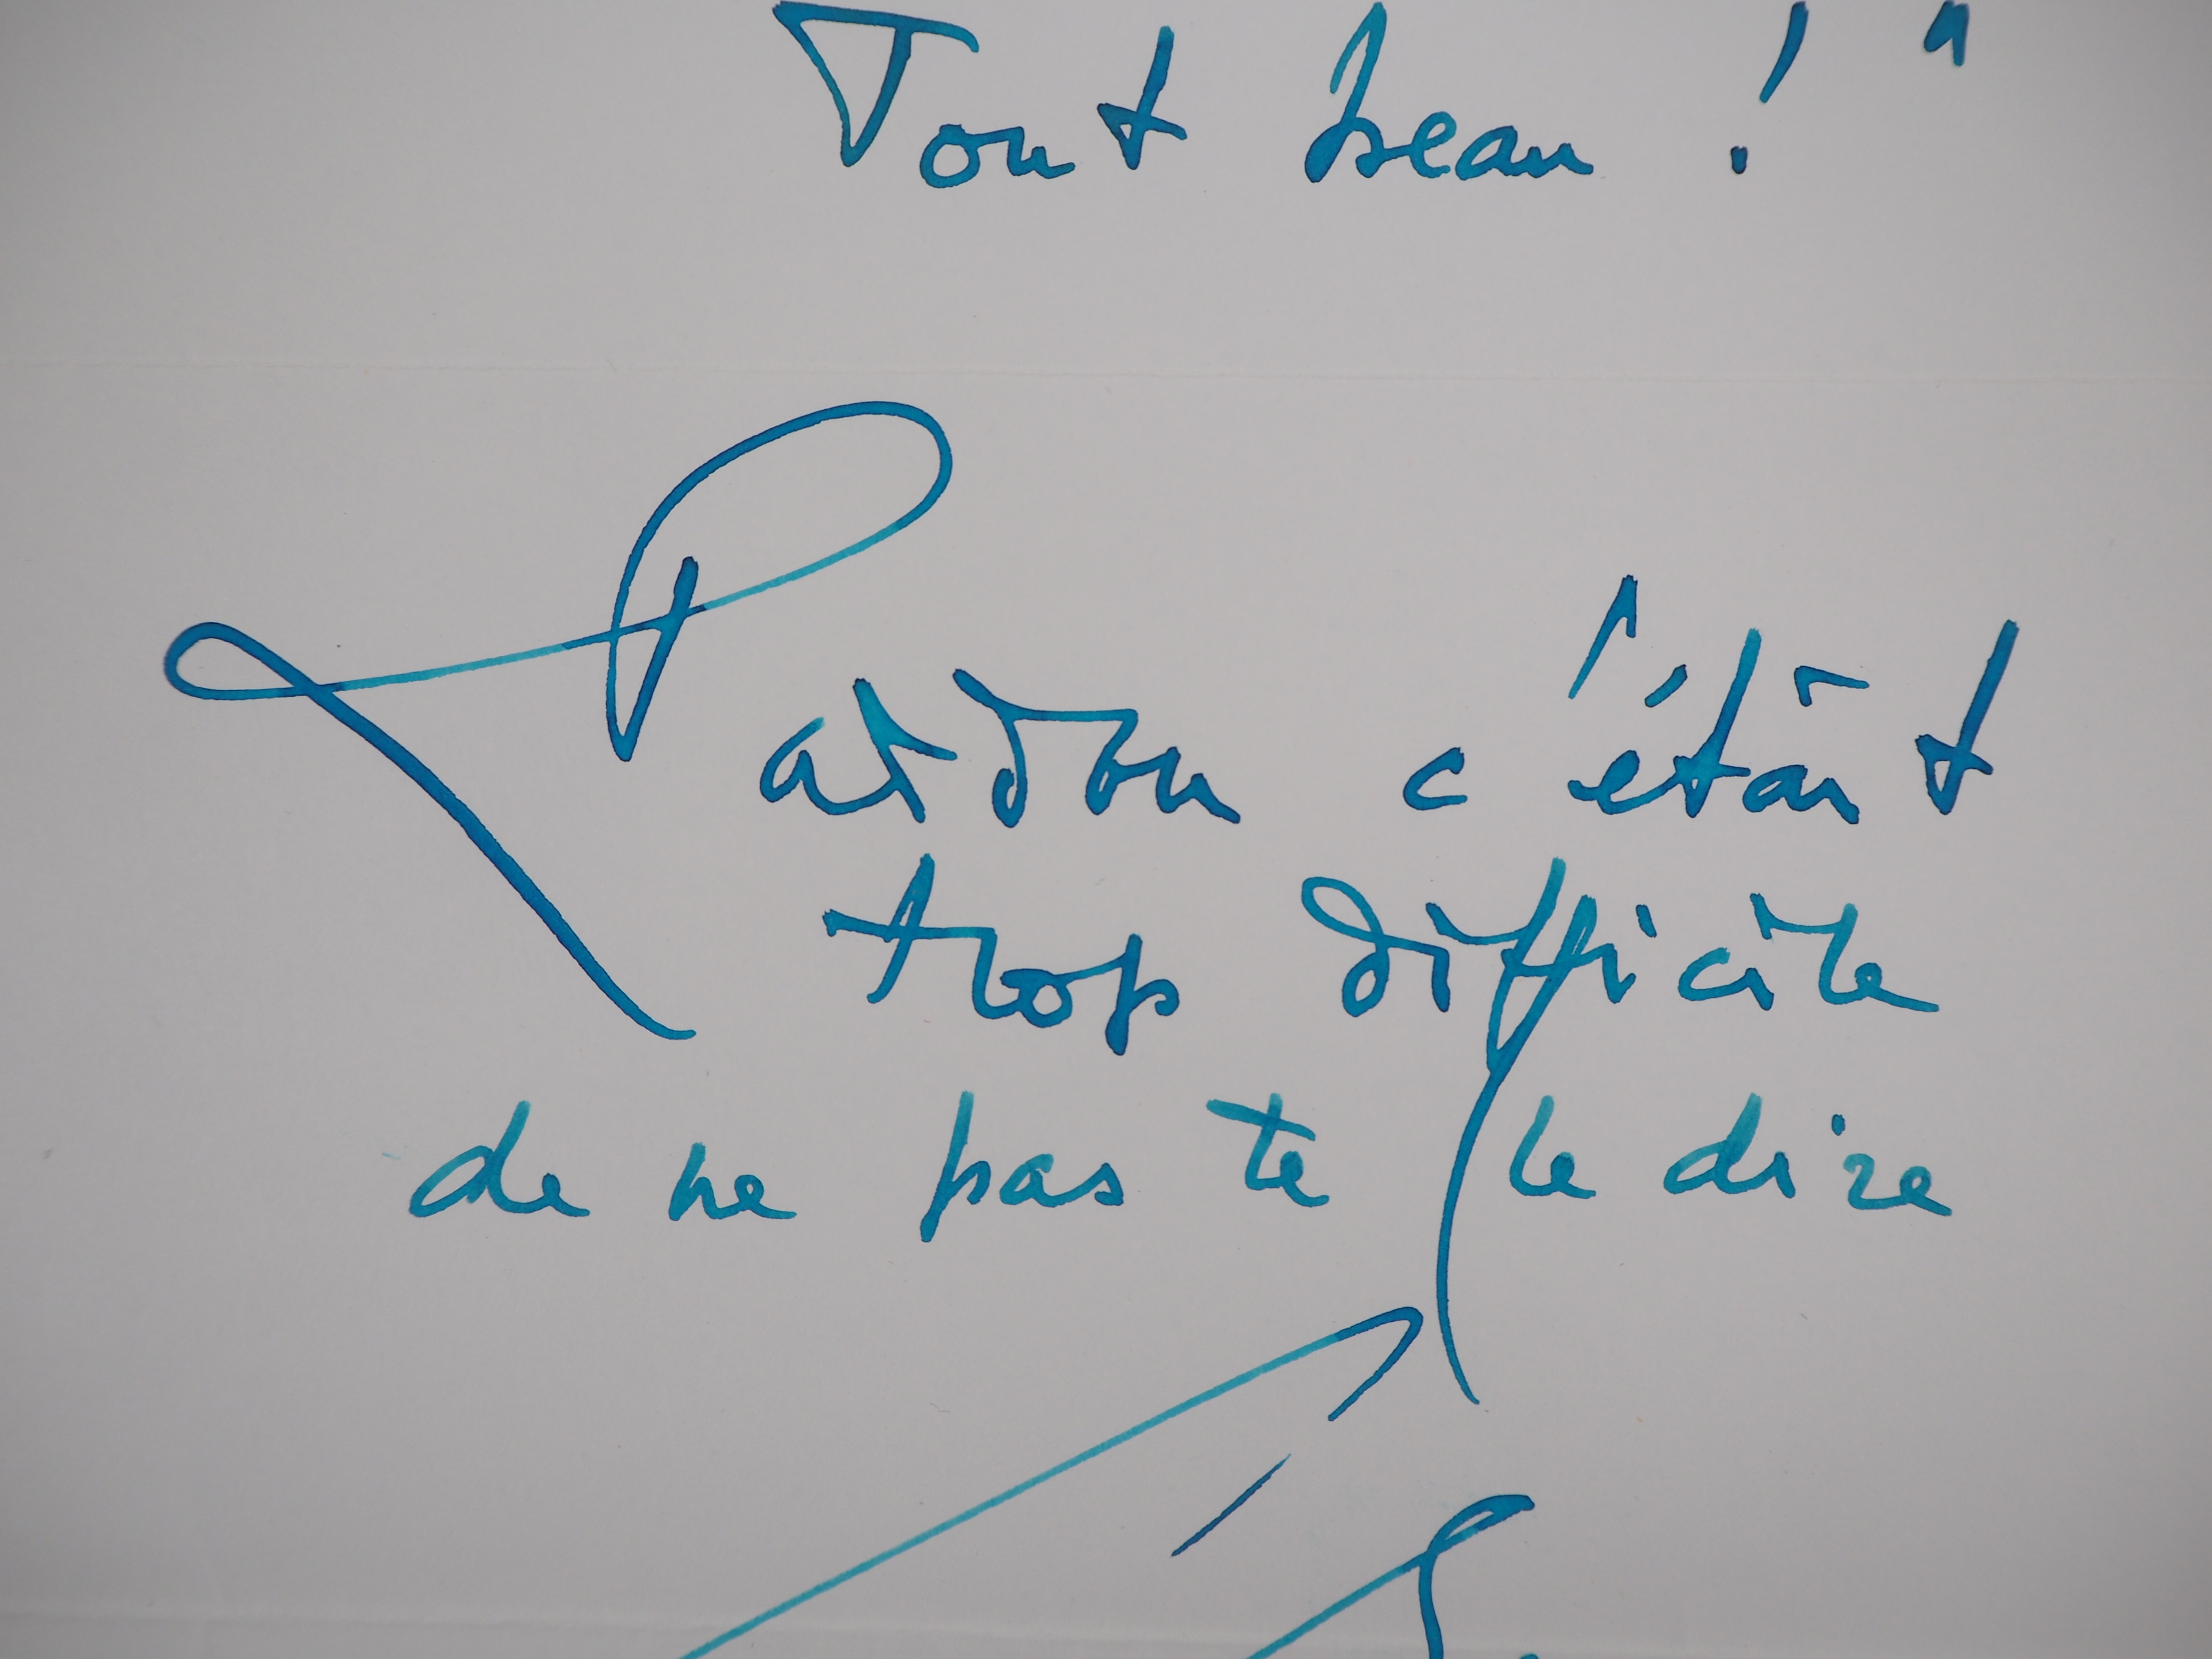 Tout beau ! "
Pardon c'était
trop difficile
de ne pas te le dire